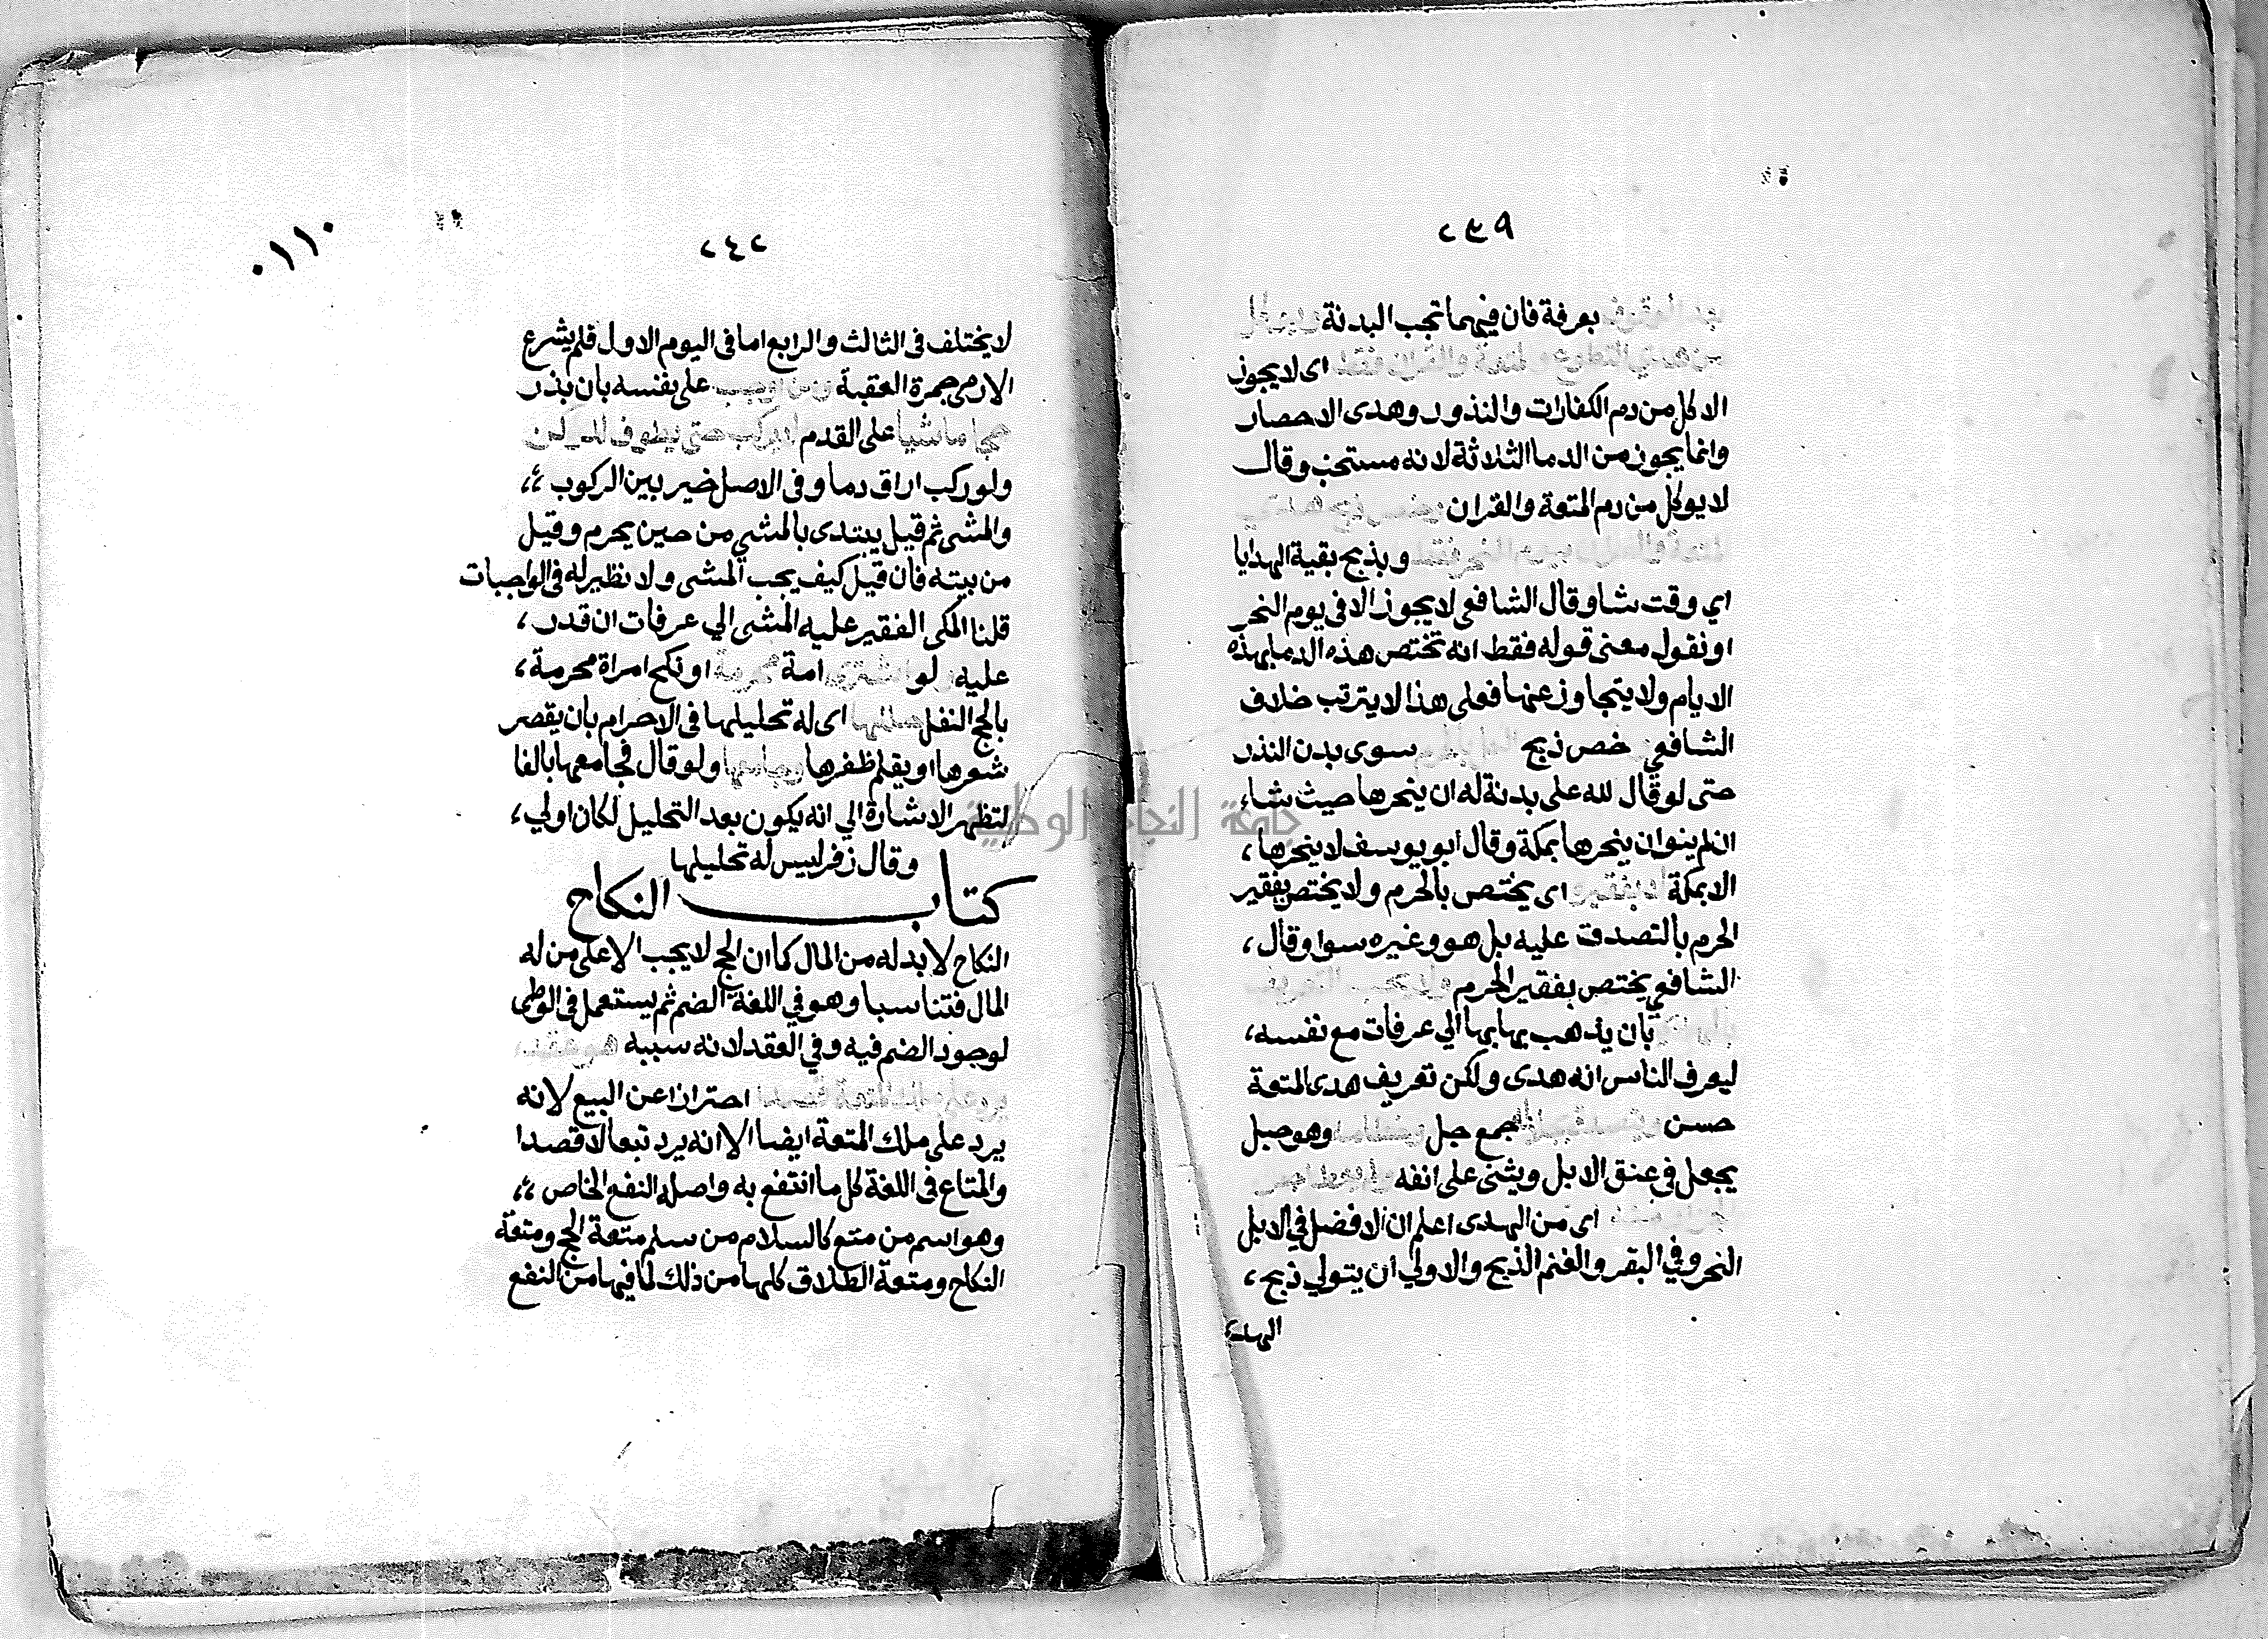 ٢٣٩
بعرفة فان فيهما تجب البدنة
اى لا يجوز
الاكل من دم الكفارات والنذور وهدى الاحصار
وانما يجوز من الدما الثلاثة لانه مستحب وقال
لا يوكل من دم المتعة والقران
ويذبح بقية الهدايا
اي وقت شا وقال الشافعى لا يجوز الا فى يوم النحر
او نقول معنى قوله فقط انه تختص هذه الدما بهذه
الايام ولا يتجاوز عنها فعلى هذا لا يترتب خلاف
الشافعى خص ذبح سوى بدن النذر
حتى لو قال لله على بدنة له ان ينحرها حيث شاء
ان لم ينو ان ينحرها بمكة وقال ابو يوسف لا ينحرها،
الا بمكة لا بفقيره اى يختص بالحرم ولا يختص بفقير
الحرم بالتصدق عليه بل هو وغيره سوا وقال،
الشافعي يختص بفقير الحرم ولا يجب التعريف
بان يذهب بها الي عرفات مع نفسه،
ليعرف الناس انه هدى ولكن تعريف هدى المتعة
حسن جمع جل وهو حبل
يجعل فى عنق الابل ويثنى على انفه
اى من الهدى اعلم ان الافضل في الابل
النحر وفي البقر والغنم الذبح والاولي ان يتولي ذبح،
الهدى
٢٤٢
٠١١٠
لا يختلف فى الثالث والرابع اما فى اليوم الاول فلم يشرع
الا رمى جمرة العقبة ومن اوجب على نفسه بان نذر
حجا ماشيا على القدم لا يركب حتى يطوف للركن
ولو ركب اراق دما وفى الاصل خير بين الركوب
والمشى ثم قيل يبتدى بالمشي من حين يحرم وقيل
من بيته فان قيل كيف يجب المشى ولا نظير له فى الواجبات
قلنا المكى الفقير عليه المشى الي عرفات ان قدر،
عليه ولو اشترى امة محرمة او نكح امراة محرمة،
بالحج النفل حللها اى له تحليلها فى الاحرام بان يقصر
شعرها او يقلم ظفرها وجامعها ولو قال فجامعها بالفا
لتظهر الاشارة الي انه يكون بعد التحليل لكان اولي،
وقال زفر ليس له تحليلها
كتاب النكاح
النكاح لا بد له من المال كما ان الحج لا يجب الا على من له
المال فتناسبا وهو في اللغة الضم ثم يستعمل فى الوطى
لوجود الضم فيه وفي العقد لانه سببه هو عقد،
يرد على ملك المتعة قصدا احترازا عن البيع لانه
يرد على ملك المتعة ايضا الا انه يرد تبعا لا قصدا
والمتاع فى اللغة كل ما انتفع به واصله النفع الخاص
وهو اسم من متع كالسلام من سلم متعة الحج ومتعة
النكاح ومتعة الطلاق كلها من ذلك لما فيها من النفع
جامعة النجاح الوطنية